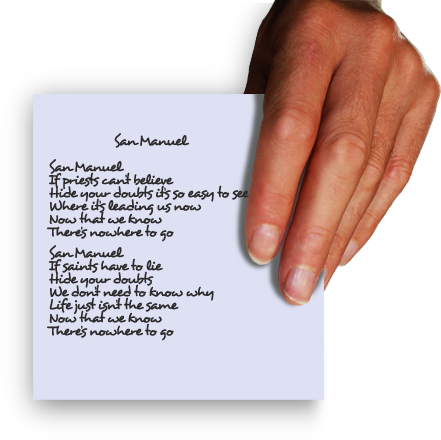 San Manuel
San Manuel
If priests can't believe
Hide your doubts it's so easy to see
Where it's leading us now
Now that we know
There's nowhere to go
San Manuel
If saints have to lie
Hide your doubts
We don't need to know why
Life just isn't the same
Now that we know
There's nowhere to go